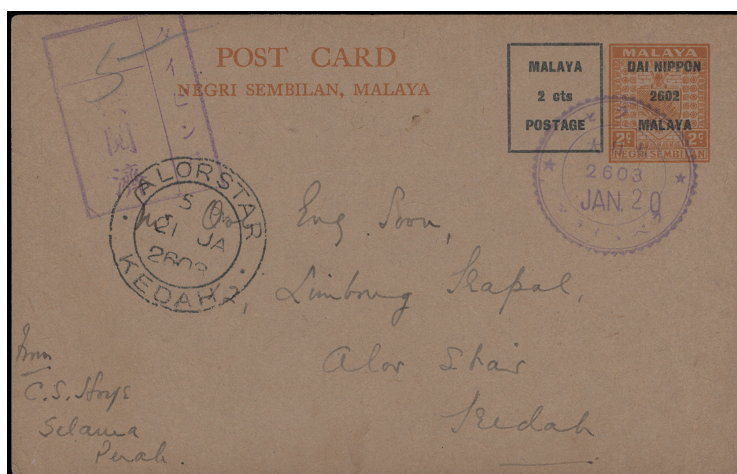 POST CARD
NEGRI SEMBILAN, MALAYA
MALAYA
2 cts
POSTAGE
MALAYA
DAI NIPPON
2602
MALAYA
2c 2c
NEGRI SEMBILAN
2603
JAN. 20
5
タイピン
閲濟
ALORSTAR
5
21 JA
2603
KEDAH 2
Eng Soon,
Limbong Kapal,
Alor Star
Kedah
From
C.S. Hoye
Selama
Perak.